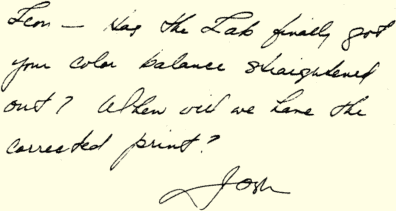 Leon — Has the Lab finally got
your color balance straightened
out? When will we have the
corrected print?
Josh